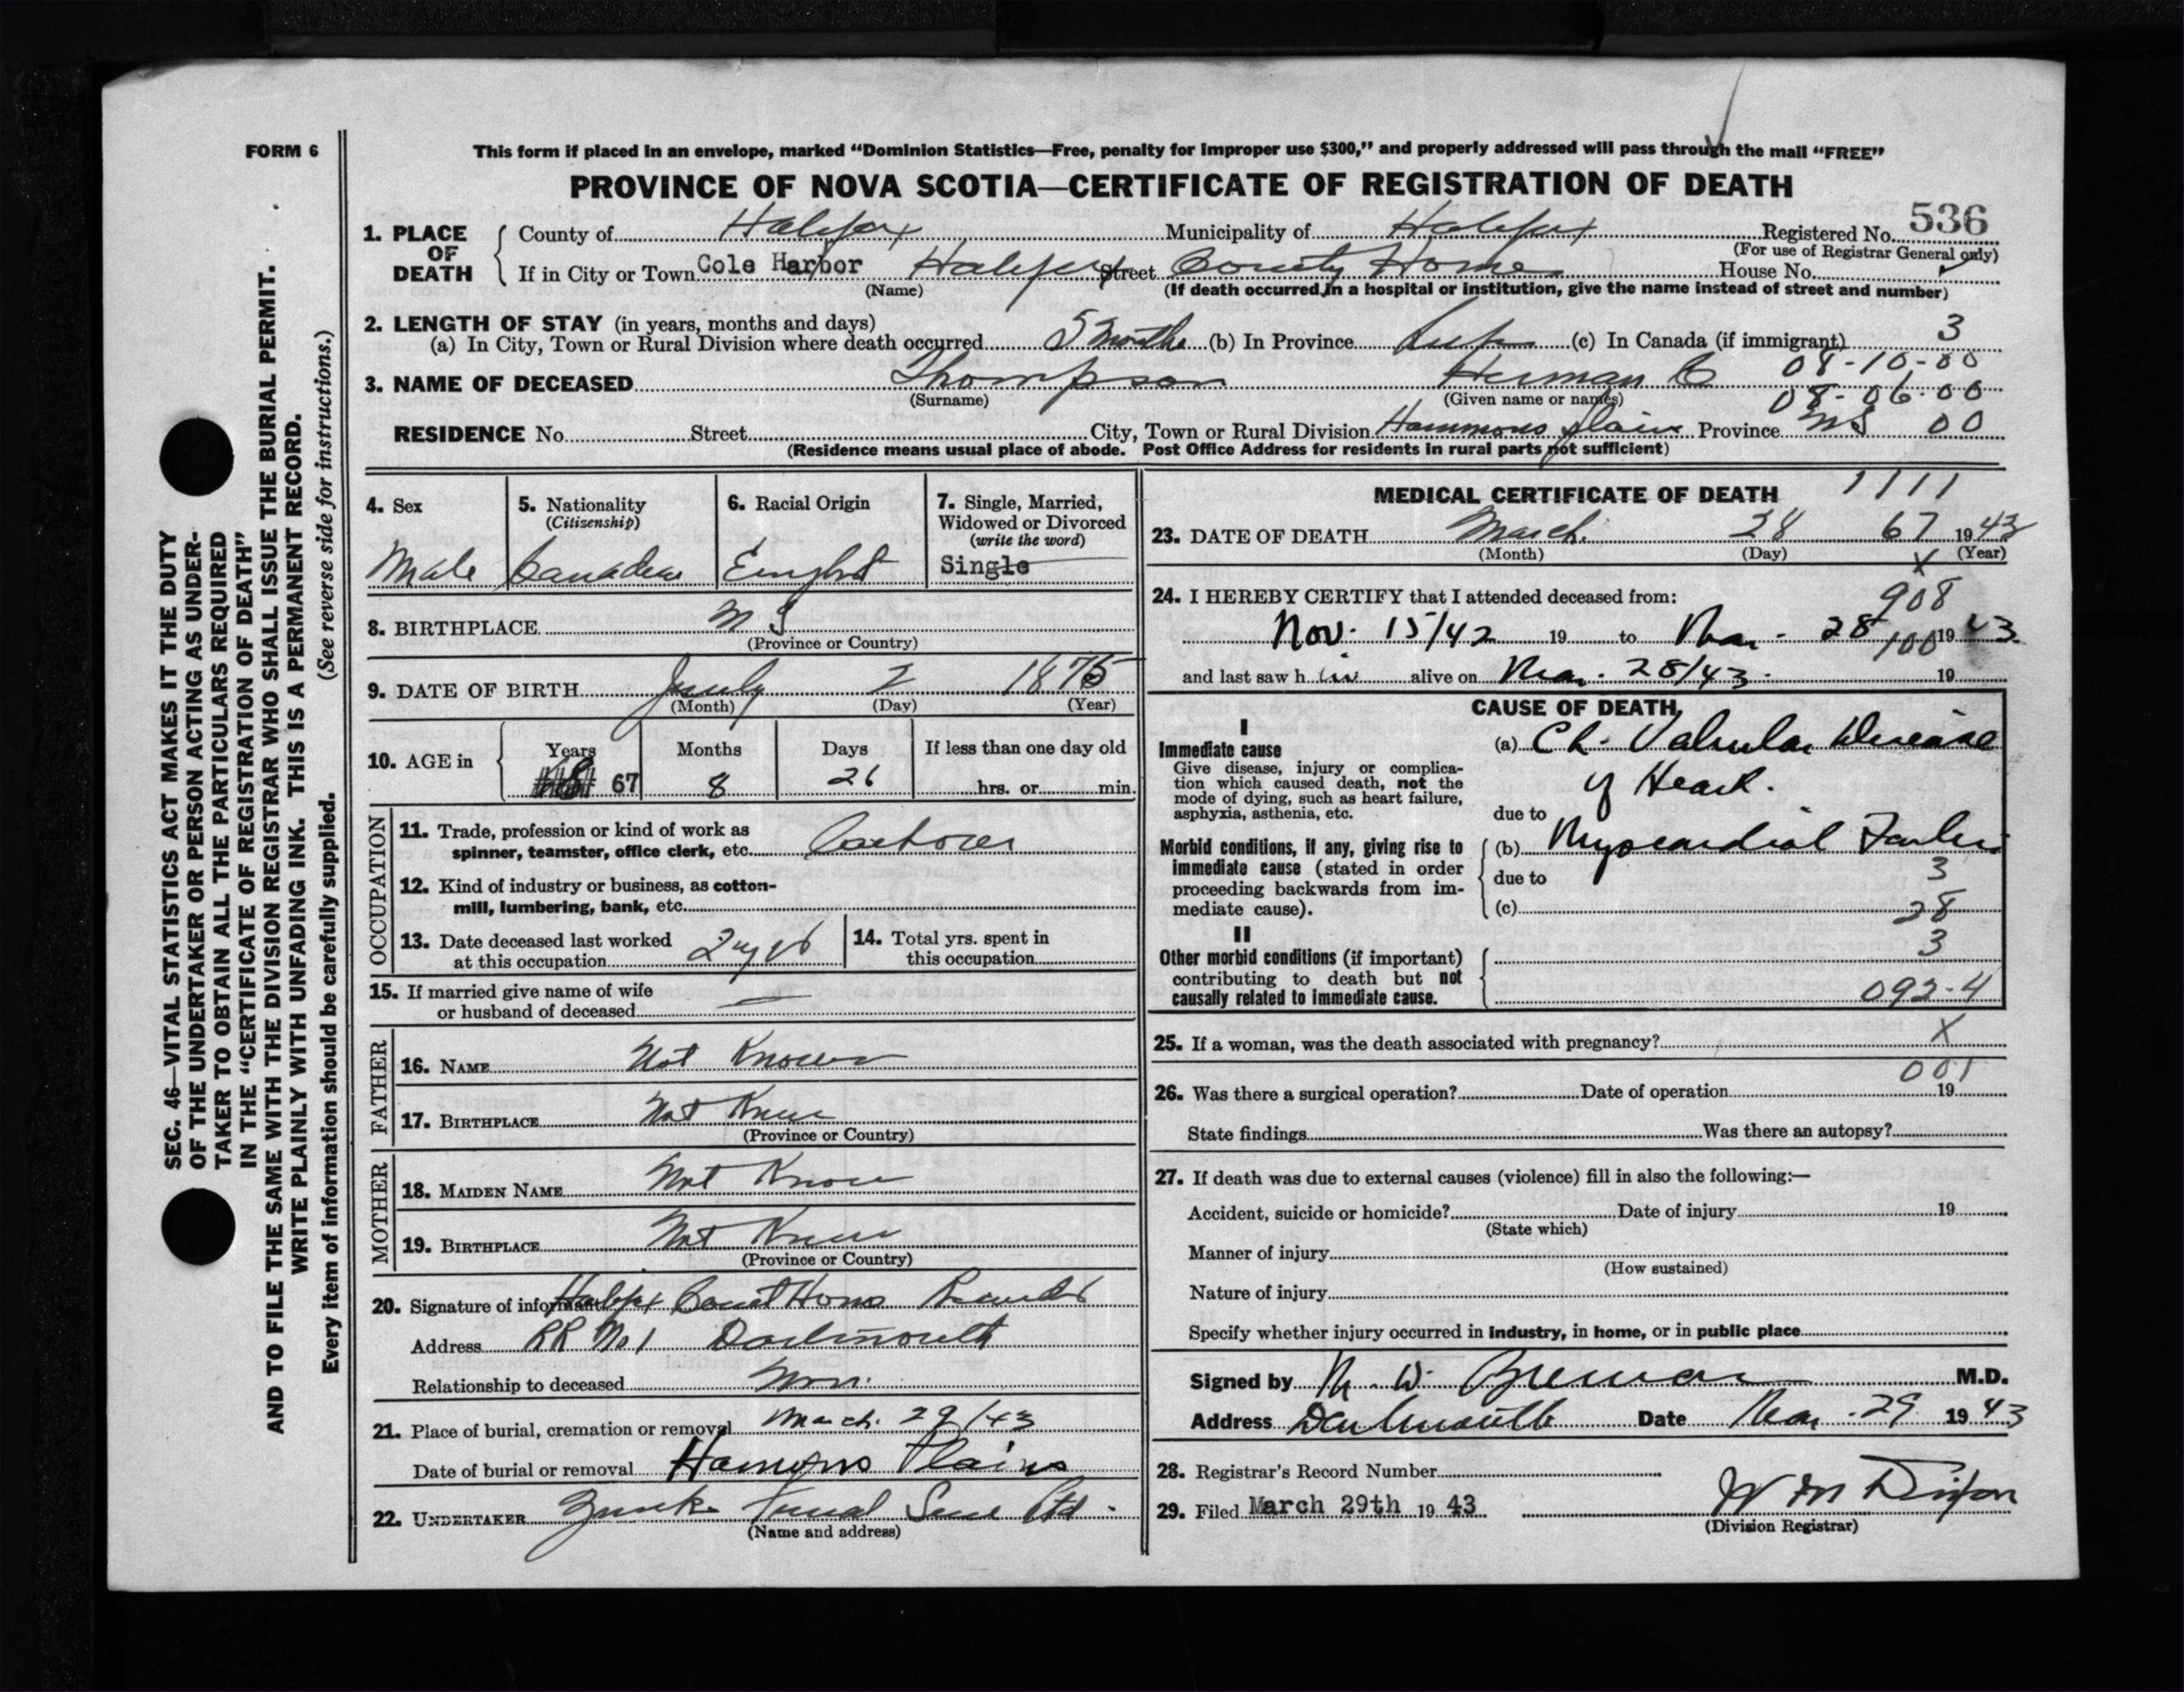 FORM 6
This form if placed in an envelope, marked “Dominion Statistics—Free, penalty for improper use $300,” and properly addressed will pass through the mail “FREE”
PROVINCE OF NOVA SCOTIA—CERTIFICATE OF REGISTRATION OF DEATH
1. PLACE OF DEATH County of Halifax Municipality of Halifax Registered No. 536
(For use of Registrar General only)
If in City or Town Cole Harbor Halifax Street County Home House No.
(Name) (If death occurred in a hospital or institution, give the name instead of street and number)
2. LENGTH OF STAY (in years, months and days)
(a) In City, Town or Rural Division where death occurred 5 Months (b) In Province Life (c) In Canada (if immigrant) 3
08-10-00
3. NAME OF DECEASED Thompson Herman C
(Surname) (Given name or names) 08-06-00
RESIDENCE No. Street City, Town or Rural Division Hammons Plains Province NS 00
(Residence means usual place of abode. Post Office Address for residents in rural parts not sufficient)
4. Sex Male
5. Nationality (Citizenship) Canadian
6. Racial Origin English
7. Single, Married, Widowed or Divorced (write the word) Single
8. BIRTHPLACE N S
(Province or Country)
9. DATE OF BIRTH July 2 1875
(Month) (Day) (Year)
10. AGE in Years 67 Months 8 Days 26 If less than one day old hrs. or min.
OCCUPATION
11. Trade, profession or kind of work as spinner, teamster, office clerk, etc. Laborer
12. Kind of industry or business, as cotton-mill, lumbering, bank, etc.
13. Date deceased last worked at this occupation
14. Total yrs. spent in this occupation
15. If married give name of wife or husband of deceased —
FATHER
16. NAME Not Known
17. BIRTHPLACE Not Know
(Province or Country)
MOTHER
18. MAIDEN NAME Not Know
19. BIRTHPLACE Not Know
(Province or Country)
20. Signature of informant Halifax Count Home Records
Address RR No 1 Dartmouth
Relationship to deceased Non.
21. Place of burial, cremation or removal March 29/43
Date of burial or removal Hamons Plains
22. UNDERTAKER Ltd.
(Name and address)
MEDICAL CERTIFICATE OF DEATH 1111
23. DATE OF DEATH March 28 67 1943
(Month) (Day) (Year)
X
24. I HEREBY CERTIFY that I attended deceased from: 908
Nov. 15/42 19 to Mar. 28 100 19 43
and last saw him alive on Mar. 28/43. 19
CAUSE OF DEATH
I
Immediate cause
Give disease, injury or complication which caused death, not the mode of dying, such as heart failure, asphyxia, asthenia, etc.
(a) Ch. Valvular Disease
of Heart.
due to
Morbid conditions, if any, giving rise to immediate cause (stated in order proceeding backwards from immediate cause).
(b) Myocardial Failure
due to 3
(c) 28
II
Other morbid conditions (if important) contributing to death but not causally related to immediate cause.
3
092-4
25. If a woman, was the death associated with pregnancy? X
001
26. Was there a surgical operation? Date of operation 19
State findings Was there an autopsy?
27. If death was due to external causes (violence) fill in also the following:—
Accident, suicide or homicide? Date of injury 19
(State which)
Manner of injury
(How sustained)
Nature of injury
Specify whether injury occurred in industry, in home, or in public place
Signed by M.D.
Address Dartmouth Date Mar. 29 1943
28. Registrar's Record Number
29. Filed March 29th 1943 W M Dixon
(Division Registrar)
SEC. 46—VITAL STATISTICS ACT MAKES IT THE DUTY
OF THE UNDERTAKER OR PERSON ACTING AS UNDER-
TAKER TO OBTAIN ALL THE PARTICULARS REQUIRED
IN THE “CERTIFICATE OF REGISTRATION OF DEATH”
AND TO FILE THE SAME WITH THE DIVISION REGISTRAR WHO SHALL ISSUE THE BURIAL PERMIT.
WRITE PLAINLY WITH UNFADING INK. THIS IS A PERMANENT RECORD.
Every item of information should be carefully supplied. (See reverse side for instructions.)